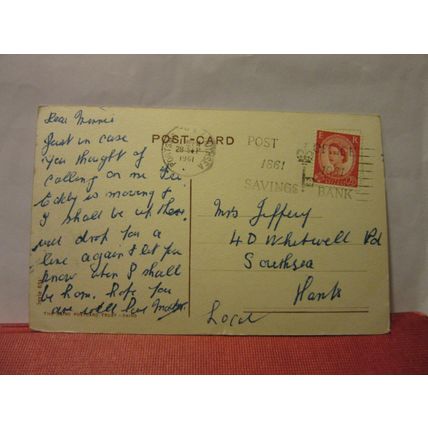 Dear Minnie
Just in case
you thought of
calling on me
Eddy is moving &
I shall be up there
will drop you a
line again & let you
know when I shall
be home. hope you
are well love
POST-CARD
POST
1861
SAVINGS
BANK
1961
Mrs Jeffery
40 Whitwell Rd
Southsea
Hants
Local